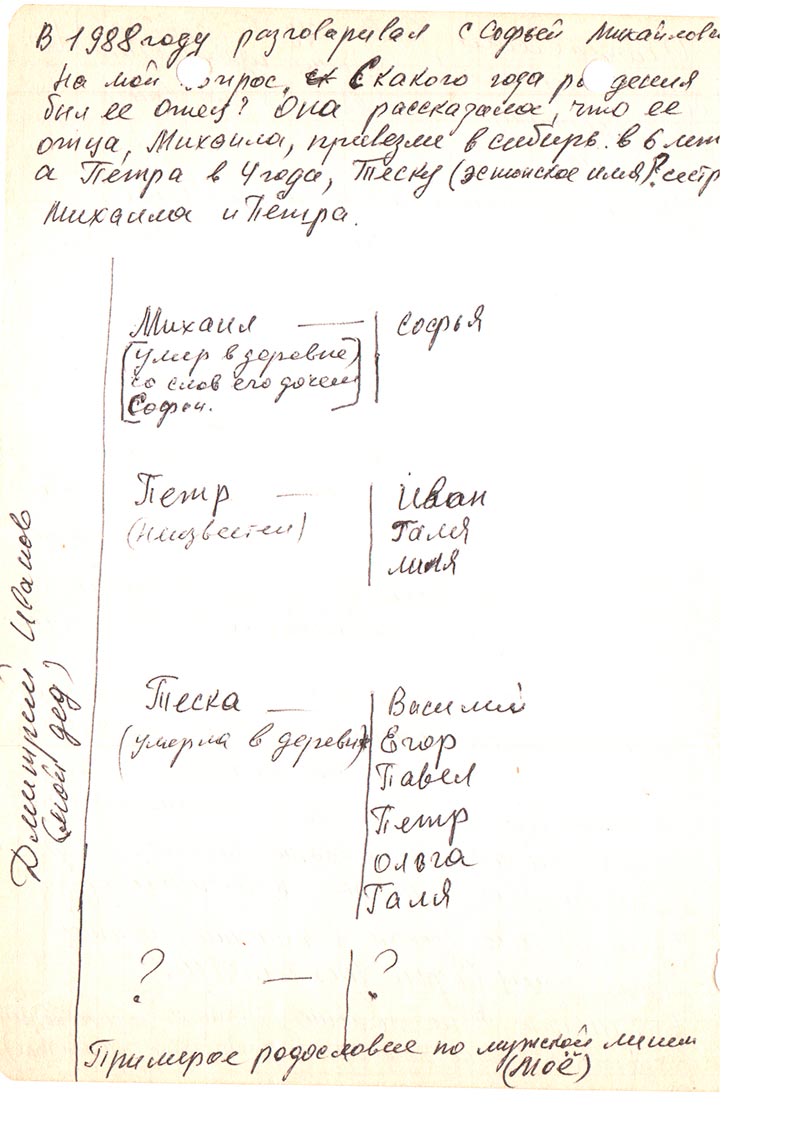 В 1988 году разговаривал с Софьей Михайловн
На мой вопрос, С какого года рождения
был ее отец? Она рассказала, что ее
отца, Михаила, привезли в сибирь. в 6 лет
а Пётра в 4 года, Теску (эстонское имя)? сестр
Михаила и Пётра.
Михаил — Софья
(умер в деревне)
со слов его дочети
Софьи.
Петр — Иван
(неизвестен) Галя
Лиля
Теска — Василий
(умерла в деревне) Егор
Павел
Петр
Ольга
Галя
? — ?
Дмитрий Иванов
(мой дед)
Примерое родословие по мужской линии
(Моё)